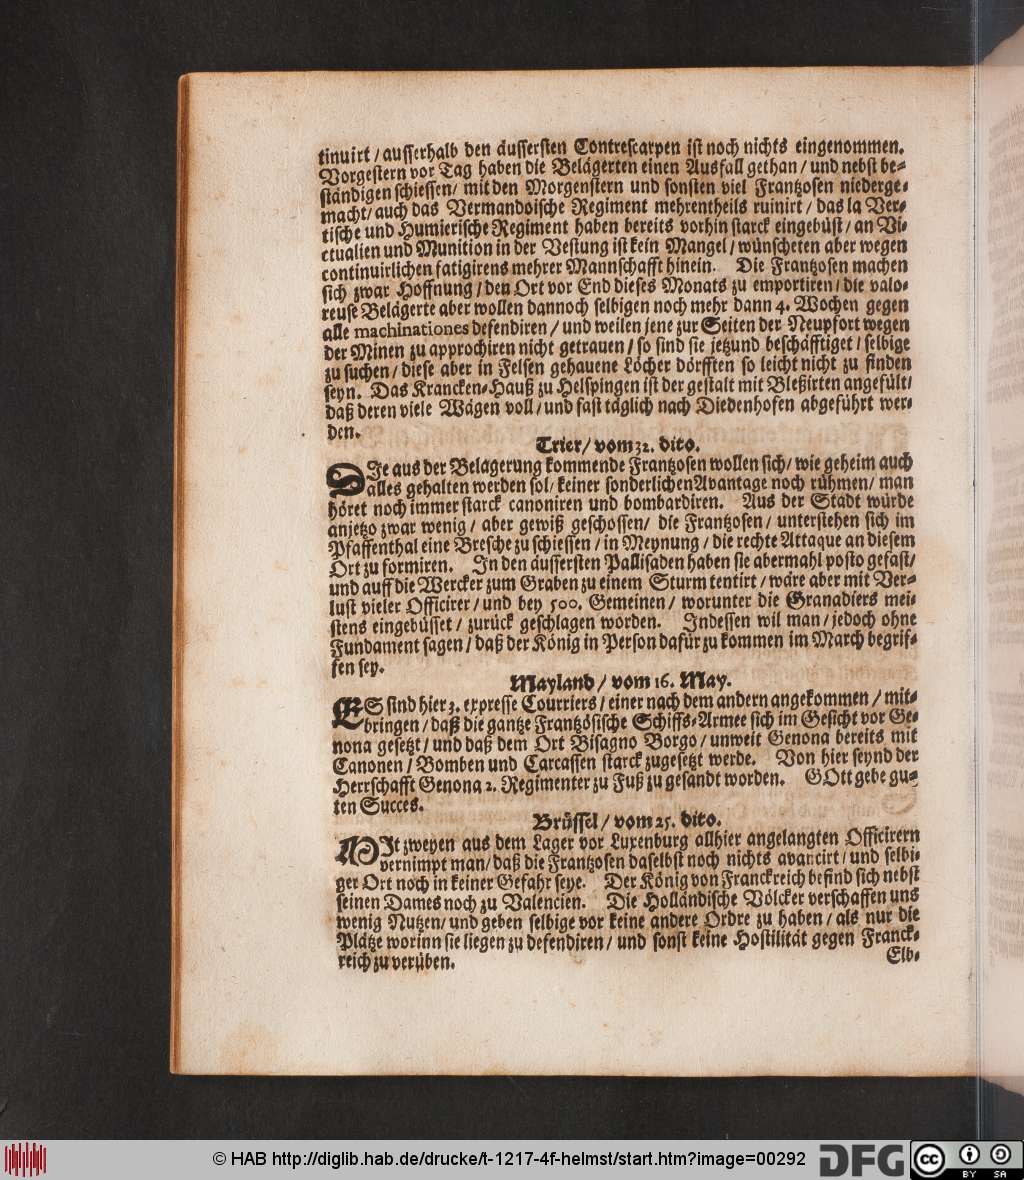 tinuirt / ausserhalb den äussersten Contrescarpen ist noch nichts eingenommen.
Vorgestern vor Tag haben die Belägerten einen Ausfall gethan / und nebst be-
ständigen schiessen / mit den Morgenstern und sonsten viel Frantzosen niederge-
macht / auch das Vermandoische Regiment mehrentheils ruinirt / das la Ver-
tische und Humierische Regiment haben bereits vorhin starck eingebüst / an Vi-
ctualien und Munition in der Vestung ist kein Mangel / wünscheten aber wegen
continuirlichen fatigirens mehrer Mannschafft hinein. Die Frantzosen machen
sich zwar Hoffnung / den Ort vor End dieses Monats zu emportiren / die valo-
reuse Belägerte aber wollen dannoch selbigen noch mehr dann 4. Wochen gegen
alle machinationes defendiren / und weilen jene zur Seiten der Neupfort wegen
der Minen zu approchiren nicht getrauen / so sind sie jetzund beschäfftiget / selbige
zu suchen / diese aber in Felsen gehauene Löcher dörfften so leicht nicht zu finden
seyn. Das Krancken-Hauß zu Helspingen ist der gestalt mit Bleßirten angefült /
daß deren viele Wägen voll / und fast täglich nach Diedenhofen abgeführt wer-
den.
Trier / vom 32. dito.
DIe aus der Belagerung kommende Frantzosen wollen sich / wie geheim auch
alles gehalten werden sol / keiner sonderlichen Avantage noch rühmen / man
höret noch immer starck canoniren und bombardiren. Aus der Stadt würde
anjetzo zwar wenig / aber gewiß geschossen / die Frantzosen / unterstehen sich im
Pfaffenthal eine Bresche zu schiessen / in Meynung / die rechte Attaque an diesem
Ort zu formiren. In den äussersten Pallisaden haben sie abermahl posto gefast /
und auff die Wercker zum Graben zu einem Sturm tentirt / wäre aber mit Ver-
lust vieler Officirer / und bey 500. Gemeinen / worunter die Granadiers mei-
stens eingebüsset / zurück geschlagen worden. Indessen wil man / jedoch ohne
Fundament sagen / daß der König in Person dafür zu kommen im March begrif-
fen sey.
Mayland / vom 16. May.
ES sind hier 3. expresse Courriers / einer nach dem andern angekommen / mit-
bringen / daß die gantze Frantzösische Schiffs-Armee sich im Gesicht vor Ge-
nona gesetzt / und daß dem Ort Bisagno Borgo / unweit Genona bereits mit
Canonen / Bomben und Carcassen starck zugesetzt werde. Von hier seynd der
Herrschafft Genona 2. Regimenter zu Fuß zu gesandt worden. GOtt gebe gu-
ten Succes.
Brüssel / vom 25. dito.
MIt zweyen aus dem Lager vor Luxenburg allhier angelangten Officirern
vernimpt man / daß die Frantzosen daselbst noch nichts avancirt / und selbi-
ger Ort noch in keiner Gefahr seye. Der König von Franckreich befind sich nebst
seinen Dames noch zu Valencien. Die Holländische Völcker verschaffen uns
wenig Nutzen / und geben selbige vor keine andere Ordre zu haben / als nur die
Plätze worinn sie liegen zu defendiren / und sonst keine Hostilität gegen Franck-
reich zu verüben.
Elb-
© HAB http://diglib.hab.de/drucke/t-1217-4f-helmst/start.htm?image=00292
DFG
cc
BY SA